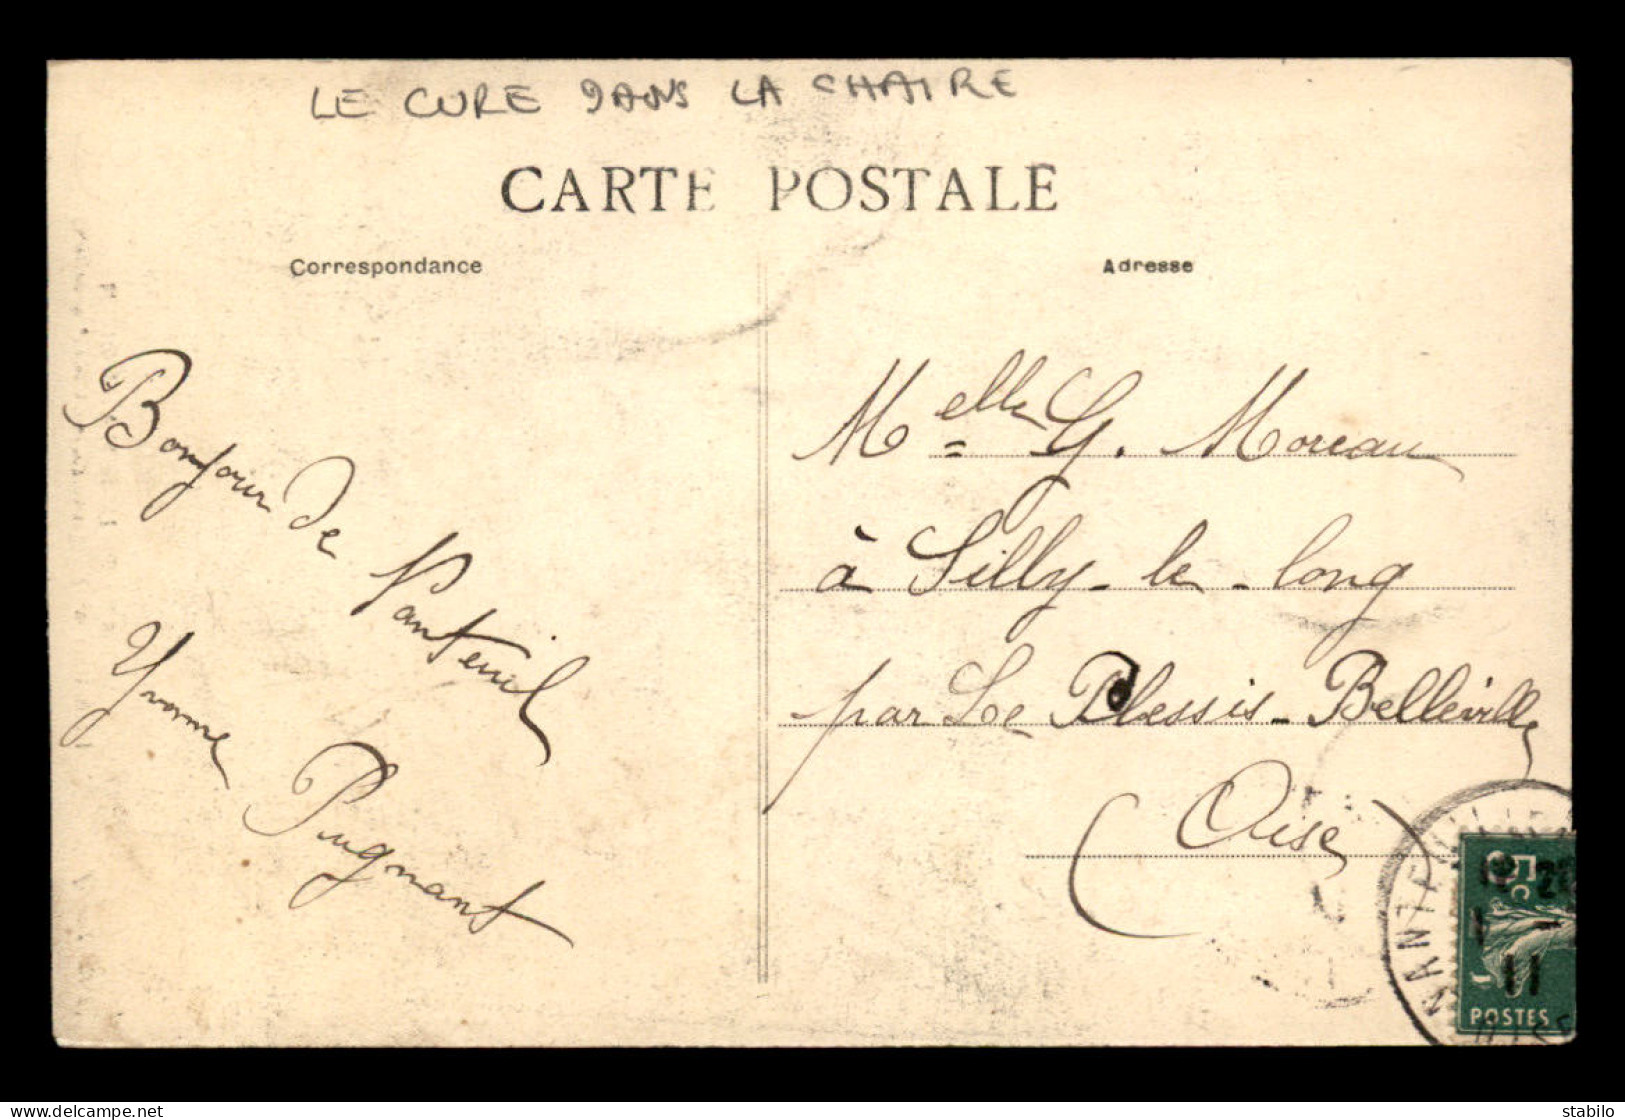 LE CURE DANS LA CHAIRE
CARTE POSTALE
Correspondance
Adresse
Bonjour de Nanteuil
Yvonne Pugnant
Melle G. Moreau
à Silly-le-long
par Le Plessis-Belleville
(Oise)
NANTEUIL
5c
11
POSTES
delcampe.net
stabilo